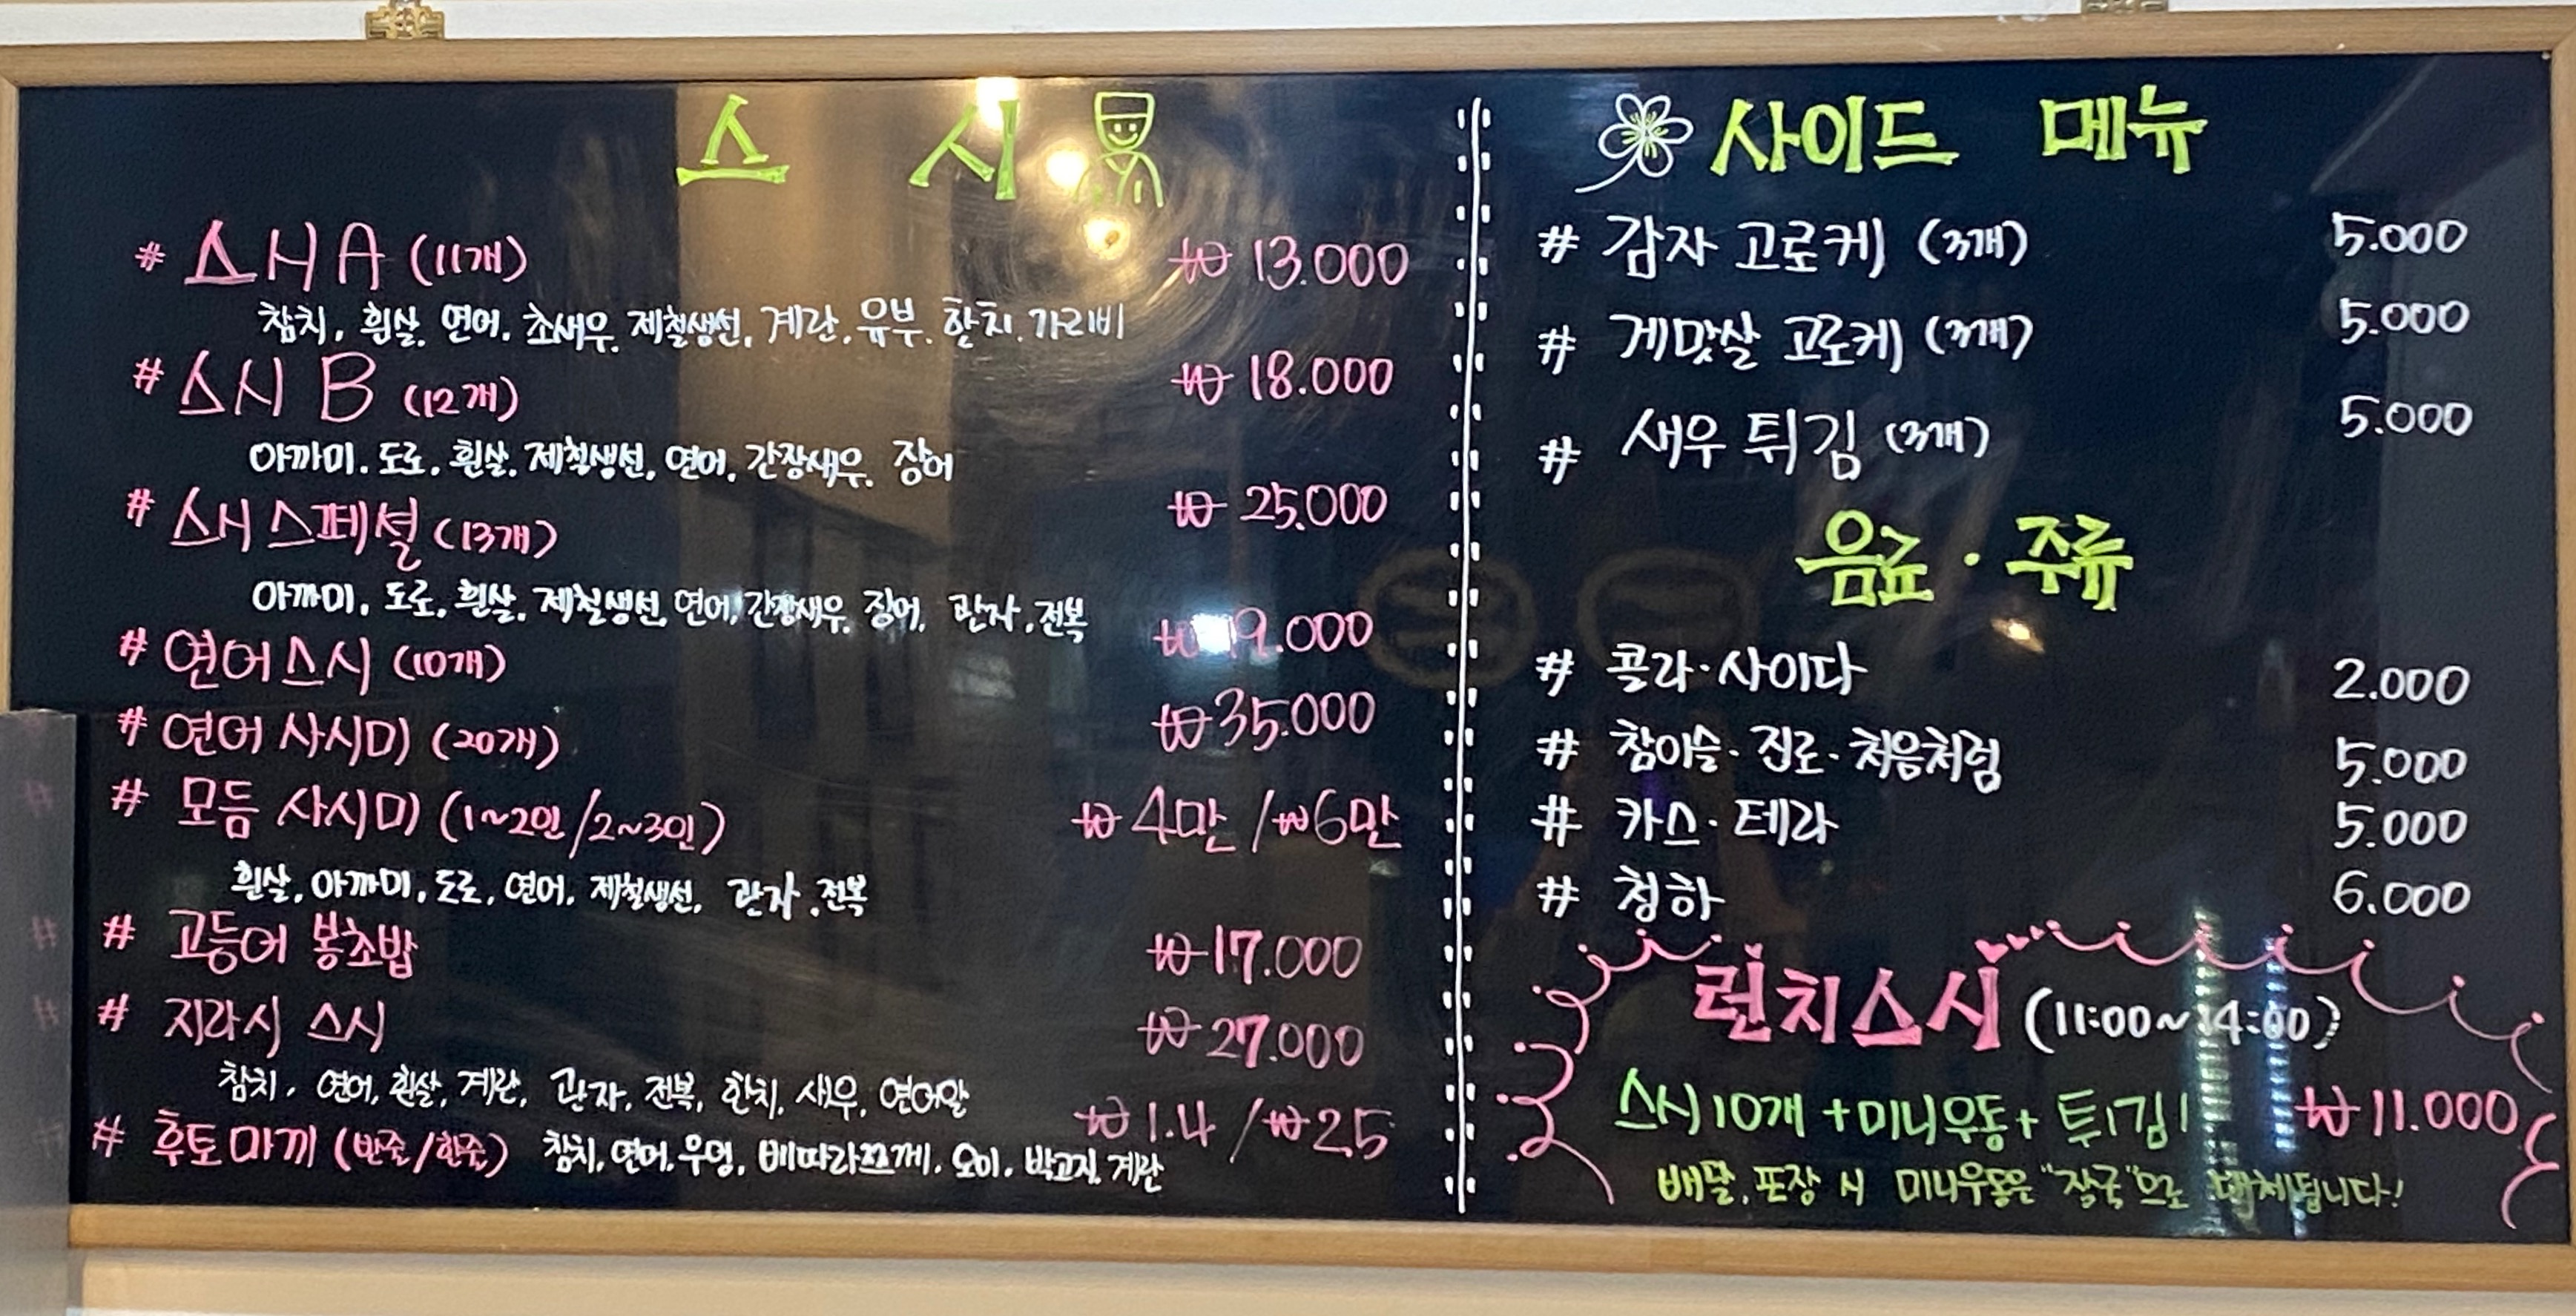 스 시
# 스시 A (11개) ₩ 13.000
참치, 흰살, 연어, 초새우, 제철생선, 계란, 유부, 한치, 가리비
# 스시 B (12개) ₩ 18.000
아까미, 도로, 흰살, 제철생선, 연어, 간장새우, 장어
# 스시 스페셜 (13개) ₩ 25.000
아까미, 도로, 흰살, 제철생선, 연어, 간장새우, 장어, 관자, 전복
# 연어스시 (10개) ₩ 19.000
# 연어 사시미 (20개) ₩ 35.000
# 모듬 사시미 (1~2인/2~3인) ₩ 4만 / ₩ 6만
흰살, 아까미, 도로, 연어, 제철생선, 관자, 전복
# 고등어 봉초밥 ₩ 17.000
# 지라시 스시 ₩ 27.000
참치, 연어, 흰살, 계란, 관자, 전복, 한치, 새우, 연어알
# 후토마끼 (반줄/한줄) ₩ 1.4 / ₩ 2.5
참치, 연어, 우엉, 베따라쯔께, 오이, 박고지, 계란
사이드 메뉴
# 감자 고로케 (3개) 5.000
# 게맛살 고로케 (3개) 5.000
# 새우 튀김 (3개) 5.000
음료 · 주류
# 콜라 · 사이다 2.000
# 참이슬 · 진로 · 처음처럼 5.000
# 카스 · 테라 5.000
# 청하 6.000
런치스시 (11:00~14:00)
스시 10개 + 미니우동 + 튀김 ₩ 11.000
배달, 포장 시 미니우동은 "장국"으로 대체됩니다!